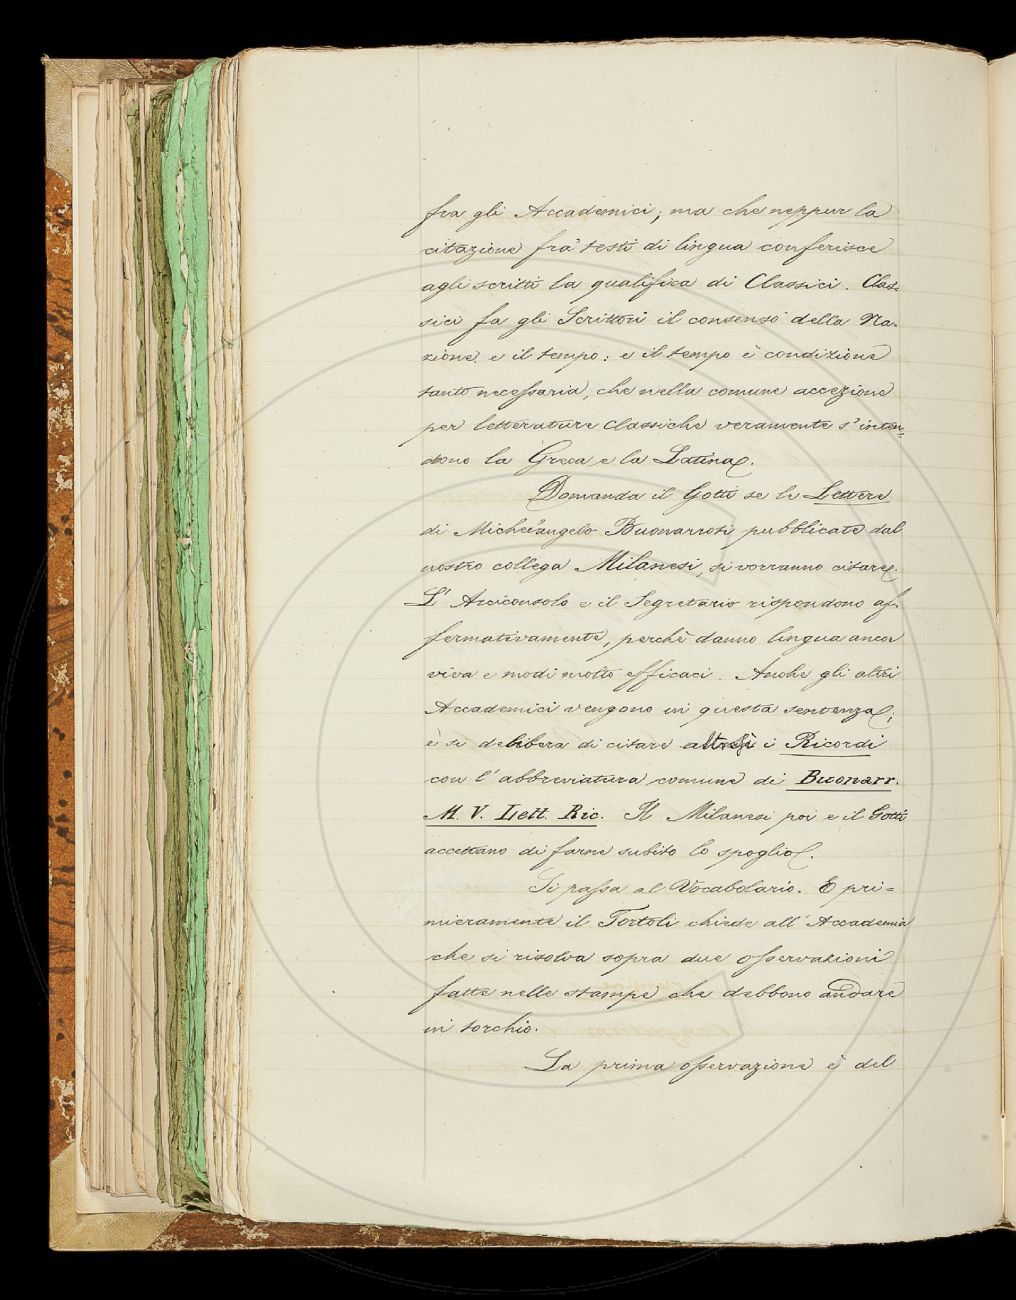 fra gli Accademici; ma che neppur la
citazione fra' testi di lingua conferisce
agli scritti la qualifica di Classici. Clas-
sici fa gli Scrittori il consenso della Na-
zione e il tempo: e il tempo è condizione
tanto necessaria, che nella comune accezione
per letterature classiche veramente s'inten-
dono la Greca e la Latina.
Domanda il Gotti se le Lettere
di Michelangelo Buonarroti pubblicate dal
nostro collega Milanesi, si vorranno citare.
L'Arciconsolo e il Segretario rispondono af-
fermativamente, perchè danno lingua ancor
viva e modi molto efficaci. Anche gli altri
Accademici vengono in questa sentenza;
e si delibera di citare altresì i Ricordi
con l'abbreviatura comune di Buonarr.
M. V. Lett. Ric. Il Milanesi poi e il Gotti
accettano di farne subito lo spoglio.
Si passa al Vocabolario. E pri-
mieramente il Tortoli chiede all'Accademia
che si risolva sopra due osservazioni
fatte nelle stampe che debbono andare
in torchio.
La prima osservazione è del